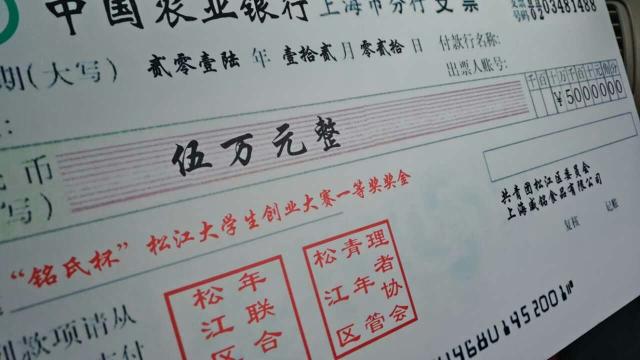 中国农业银行 上海市分行 支票
支票
号码 0203481488
期(大写) 贰零壹陆 年 壹拾贰 月 零贰拾 日
付款行名称:
出票人账号:
民币
写)
伍万元整
千百十万千百十元角分
¥5000000
"铭氏杯"松江大学生创业大赛一等奖奖金
共青团松江区委员会
上海威铭食品有限公司
复核 记账
松江区
年联合
松江区
青年管
理者协会
列款项请从
支付